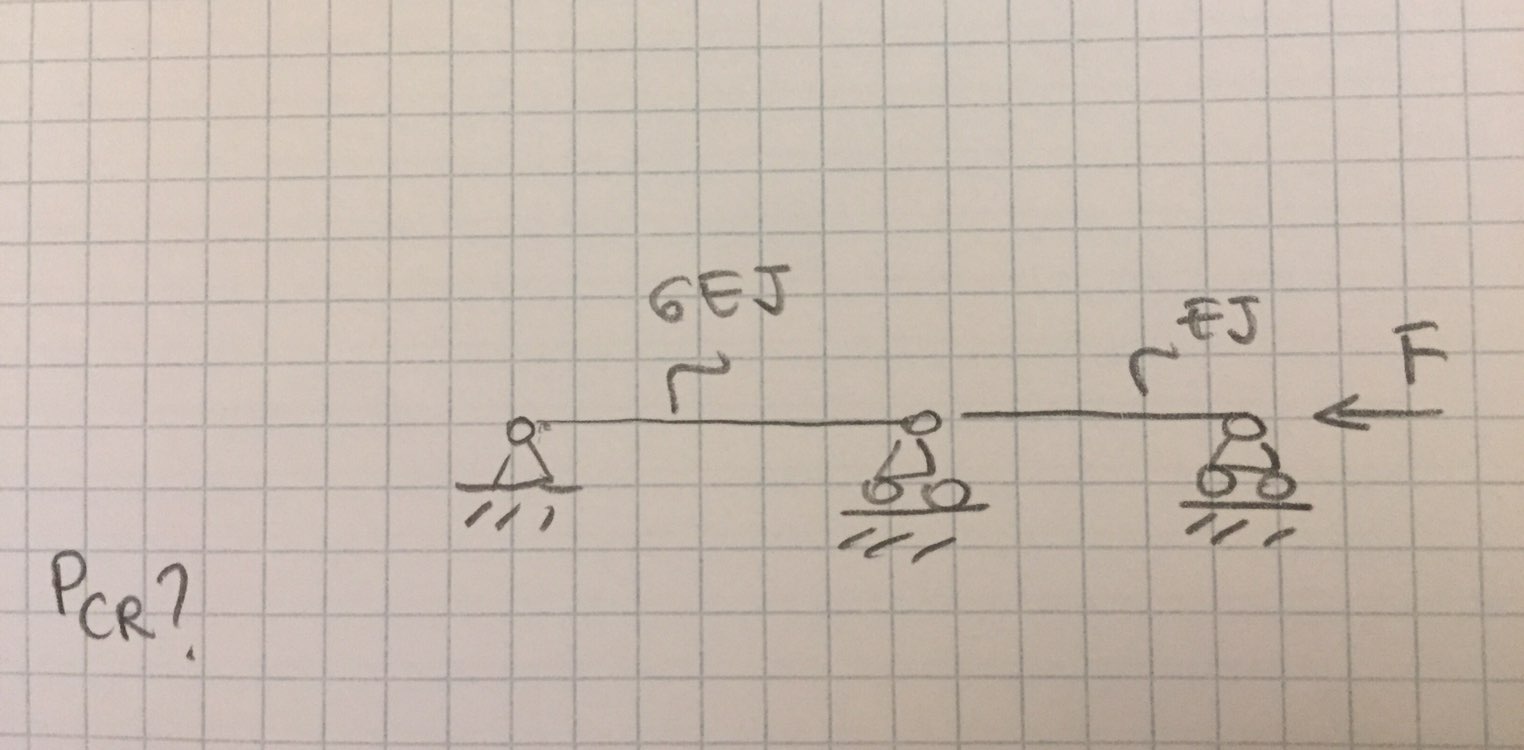 6EJ
EJ
F
PCR?